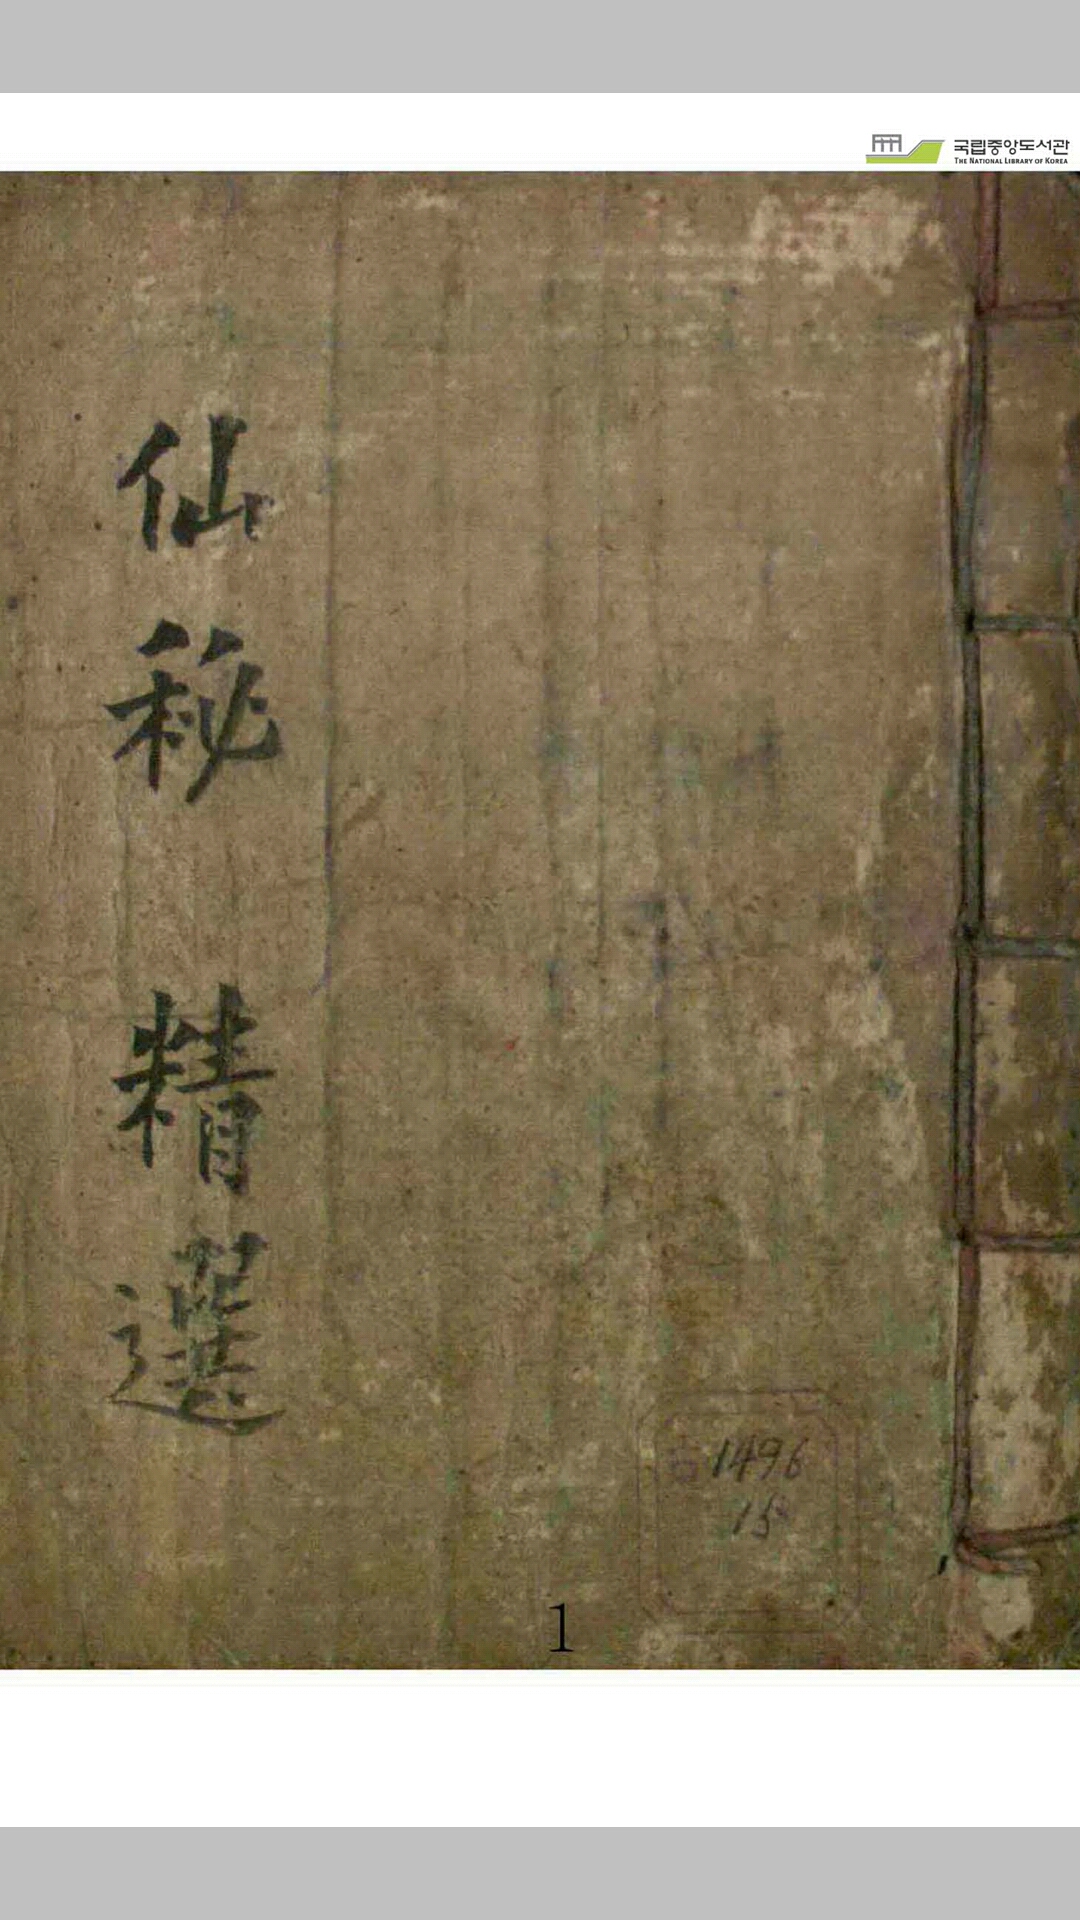 국립중앙도서관
THE NATIONAL LIBRARY OF KOREA
仙秘精選
古1496
15
1